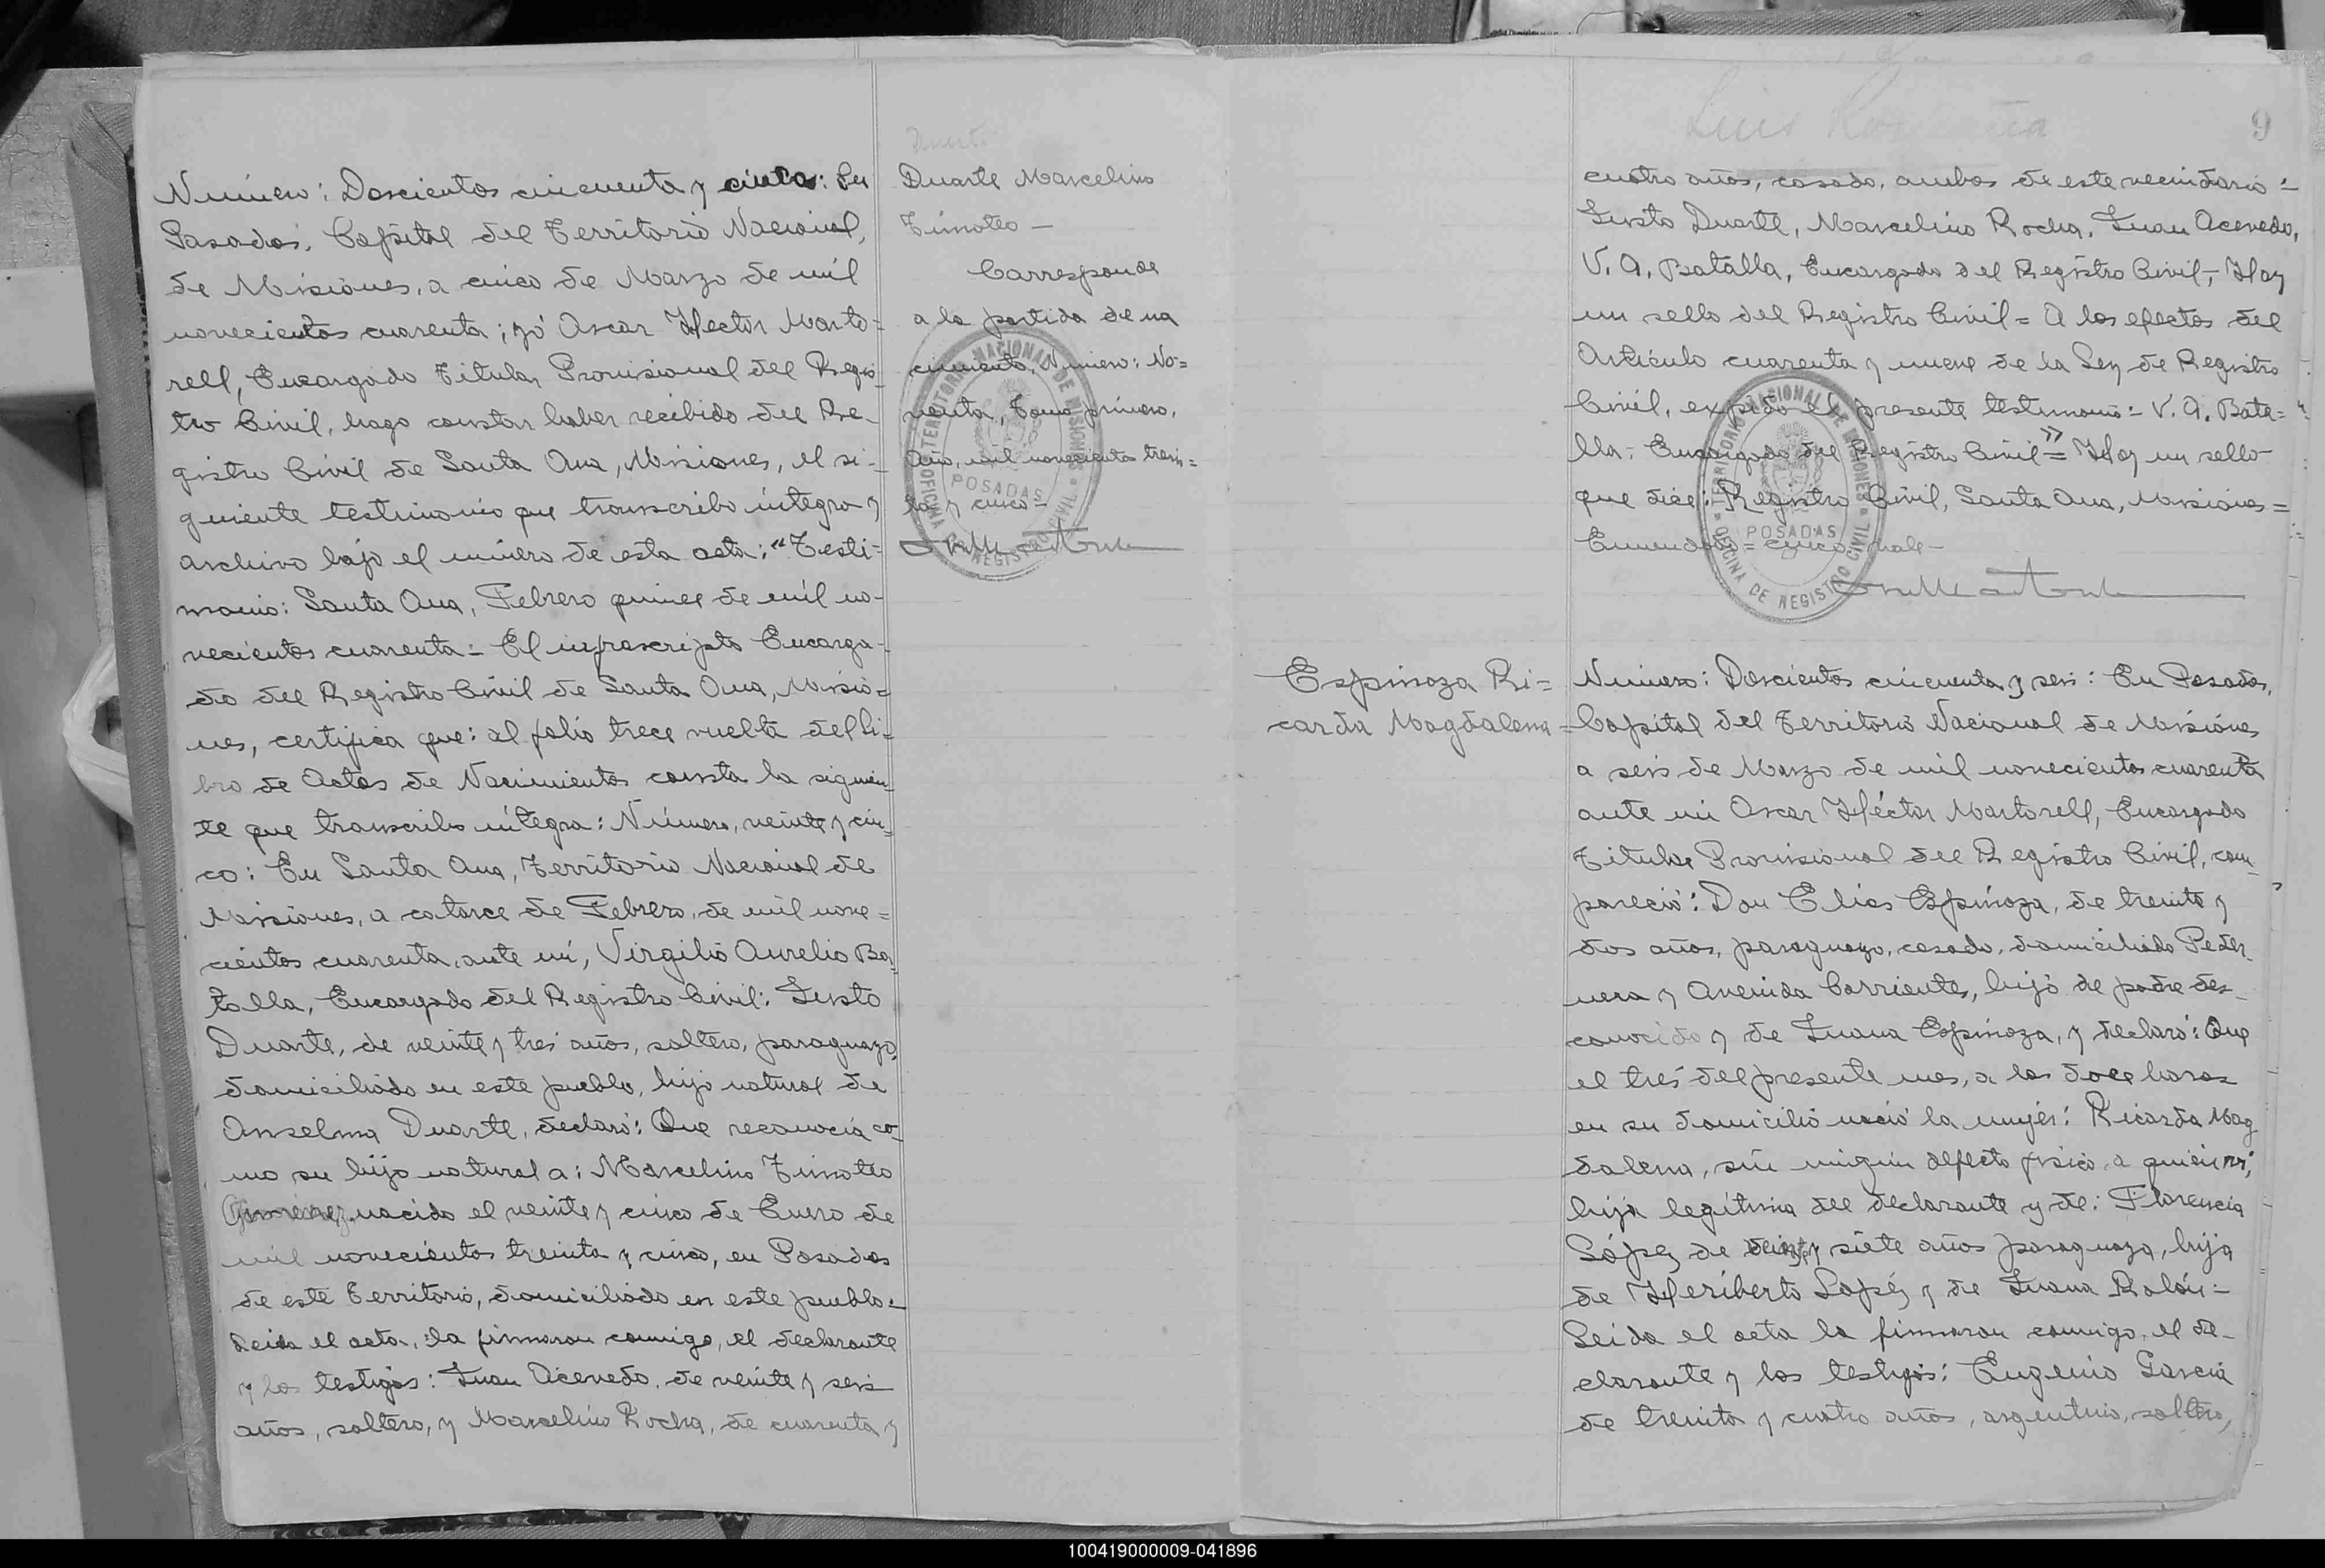 Número: Doscientos cincuenta y cinco: En
Posadas, Capital del Territorio Nacional,
de Misiones, a cinco de Marzo de mil
novecientos cuarenta; yó Oscar Hector Marto-
rell, Encargado Titular Provisional del Regis-
tro Civil, hago constar haber recibido del Re-
gistro Civil de Santa Ana, Misiones, el si-
guiente testimonio que transcribo íntegro y
archivo bajo el número de esta acta: "Testi-
monio: Santa Ana, Febrero quince de mil no-
vecientos cuarenta = El infrascripto Encarga-
do del Registro Civil de Santa Ana, Misio=
nes, certifica que: al folio trece vuelta del Li-
bro de Actas de Nacimientos consta la siguien-
te que transcribo íntegra: Número, veinte y cin-
co: En Santa Ana, Territorio Nacional de
Misiones, a catorce de Febrero, de mil nove=
cientos cuarenta, ante mí, Virgilio Aurelio Ba-
talla, Encargado del Registro Civil: Justo
Duarte, de veinte y tres años, soltero, paraguayo,
domiciliado en este pueblo, hijo natural de
Anselma Duarte, declaró: Que reconocía co-
mo su hijo natural a: Marcelino Timoteo
nacido el veinte y cinco de Enero de
mil novecientos treinta y cinco, en Posadas
de este Territorio, domiciliado en este pueblo =
Leida el acta, la firmaron conmigo, el declarante
y los testigos: Juan Acevedo, de veinte y seis
años, soltero, y Marcelino Rocha, de cuarenta y
Duarte Marcelino
Timoteo —
Corresponde
a la partida de na
cimiento, Número: No=
venta, Tomo primero,
Año, mil novecientos trein=
ta y cinco =
OFICINA DE REGISTRO CIVIL
TERRITORIO NACIONAL DE MISIONES
POSADAS
Luis
9
cuatro años, casado, ambos de este vecindario =
Justo Duarte, Marcelino Rocha, Juan Acevedo,
V. A. Batalla, Encargado del Registro Civil - Hay
un sello del Registro Civil = A los efectos del
Artículo cuarenta y nueve de la Ley de Registro
Civil, expido el presente testimonio = V. A. Bata=
lla: Encargado del Registro Civil" = Hay un sello
que dice: Registro Civil, Santa Ana, Misiones =
Enmendado = cinco = Vale -
OFICINA DE REGISTRO CIVIL
TERRITORIO NACIONAL DE MISIONES
POSADAS
Espinoza Ri=
carda Magdalena=
Número: Doscientos cincuenta y seis: En Posadas,
Capital del Territorio Nacional de Misiones
a seis de Marzo de mil novecientos cuarenta
ante mi Oscar Héctor Martorell, Encargado
Titular Provisional del Registro Civil, com-
pareció: Don Elías Espínoza, de treinta y
dos años, paraguayo, casado, domiciliado Peder-
nera y Avenida Corrientes, hijo de padre des-
conocido y de Juana Espínoza, y declaró: Que
el tres del presente mes, a las doce horas
en su domicilio nació la mujer: Ricarda Mag
dalena, sin ningún defecto físico, a quien vi,
hija legítima del declarante y de: Florencia
López de veinte y siete años paraguaya, hija
de Heriberto Lopéz y de Juana Rolón =
Leida el acta la firmaron conmigo, el de-
clarante y los testigos: Eugenio Garcia
de treinta y cuatro años, argentino, soltero,
100419000009-041896